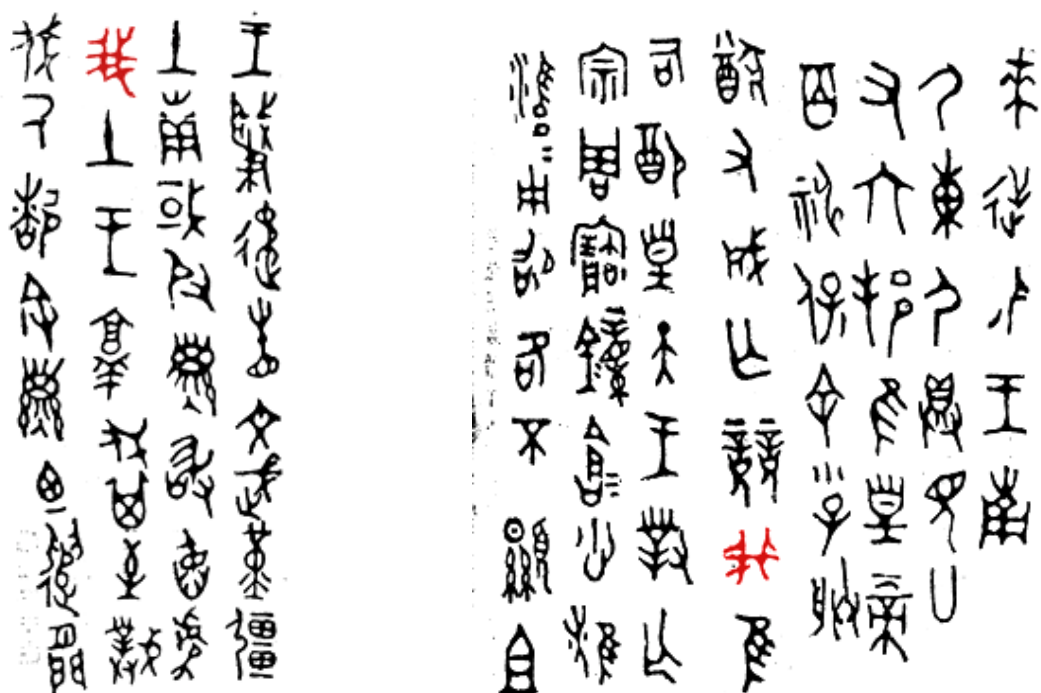 王肇遹省文武堇彊
土南或𠬝孳敢臽虐
我土王𦎫伐其至撲
伐氒都𠬝孳廼遣閒
來逆卲王南
尸東尸具見廿
又六邦隹皇上帝
百神保余小子朕
猷又成亡競我隹
司配皇天王對乍
宗周寶鐘倉=悤=
雝=用卲各不顯且